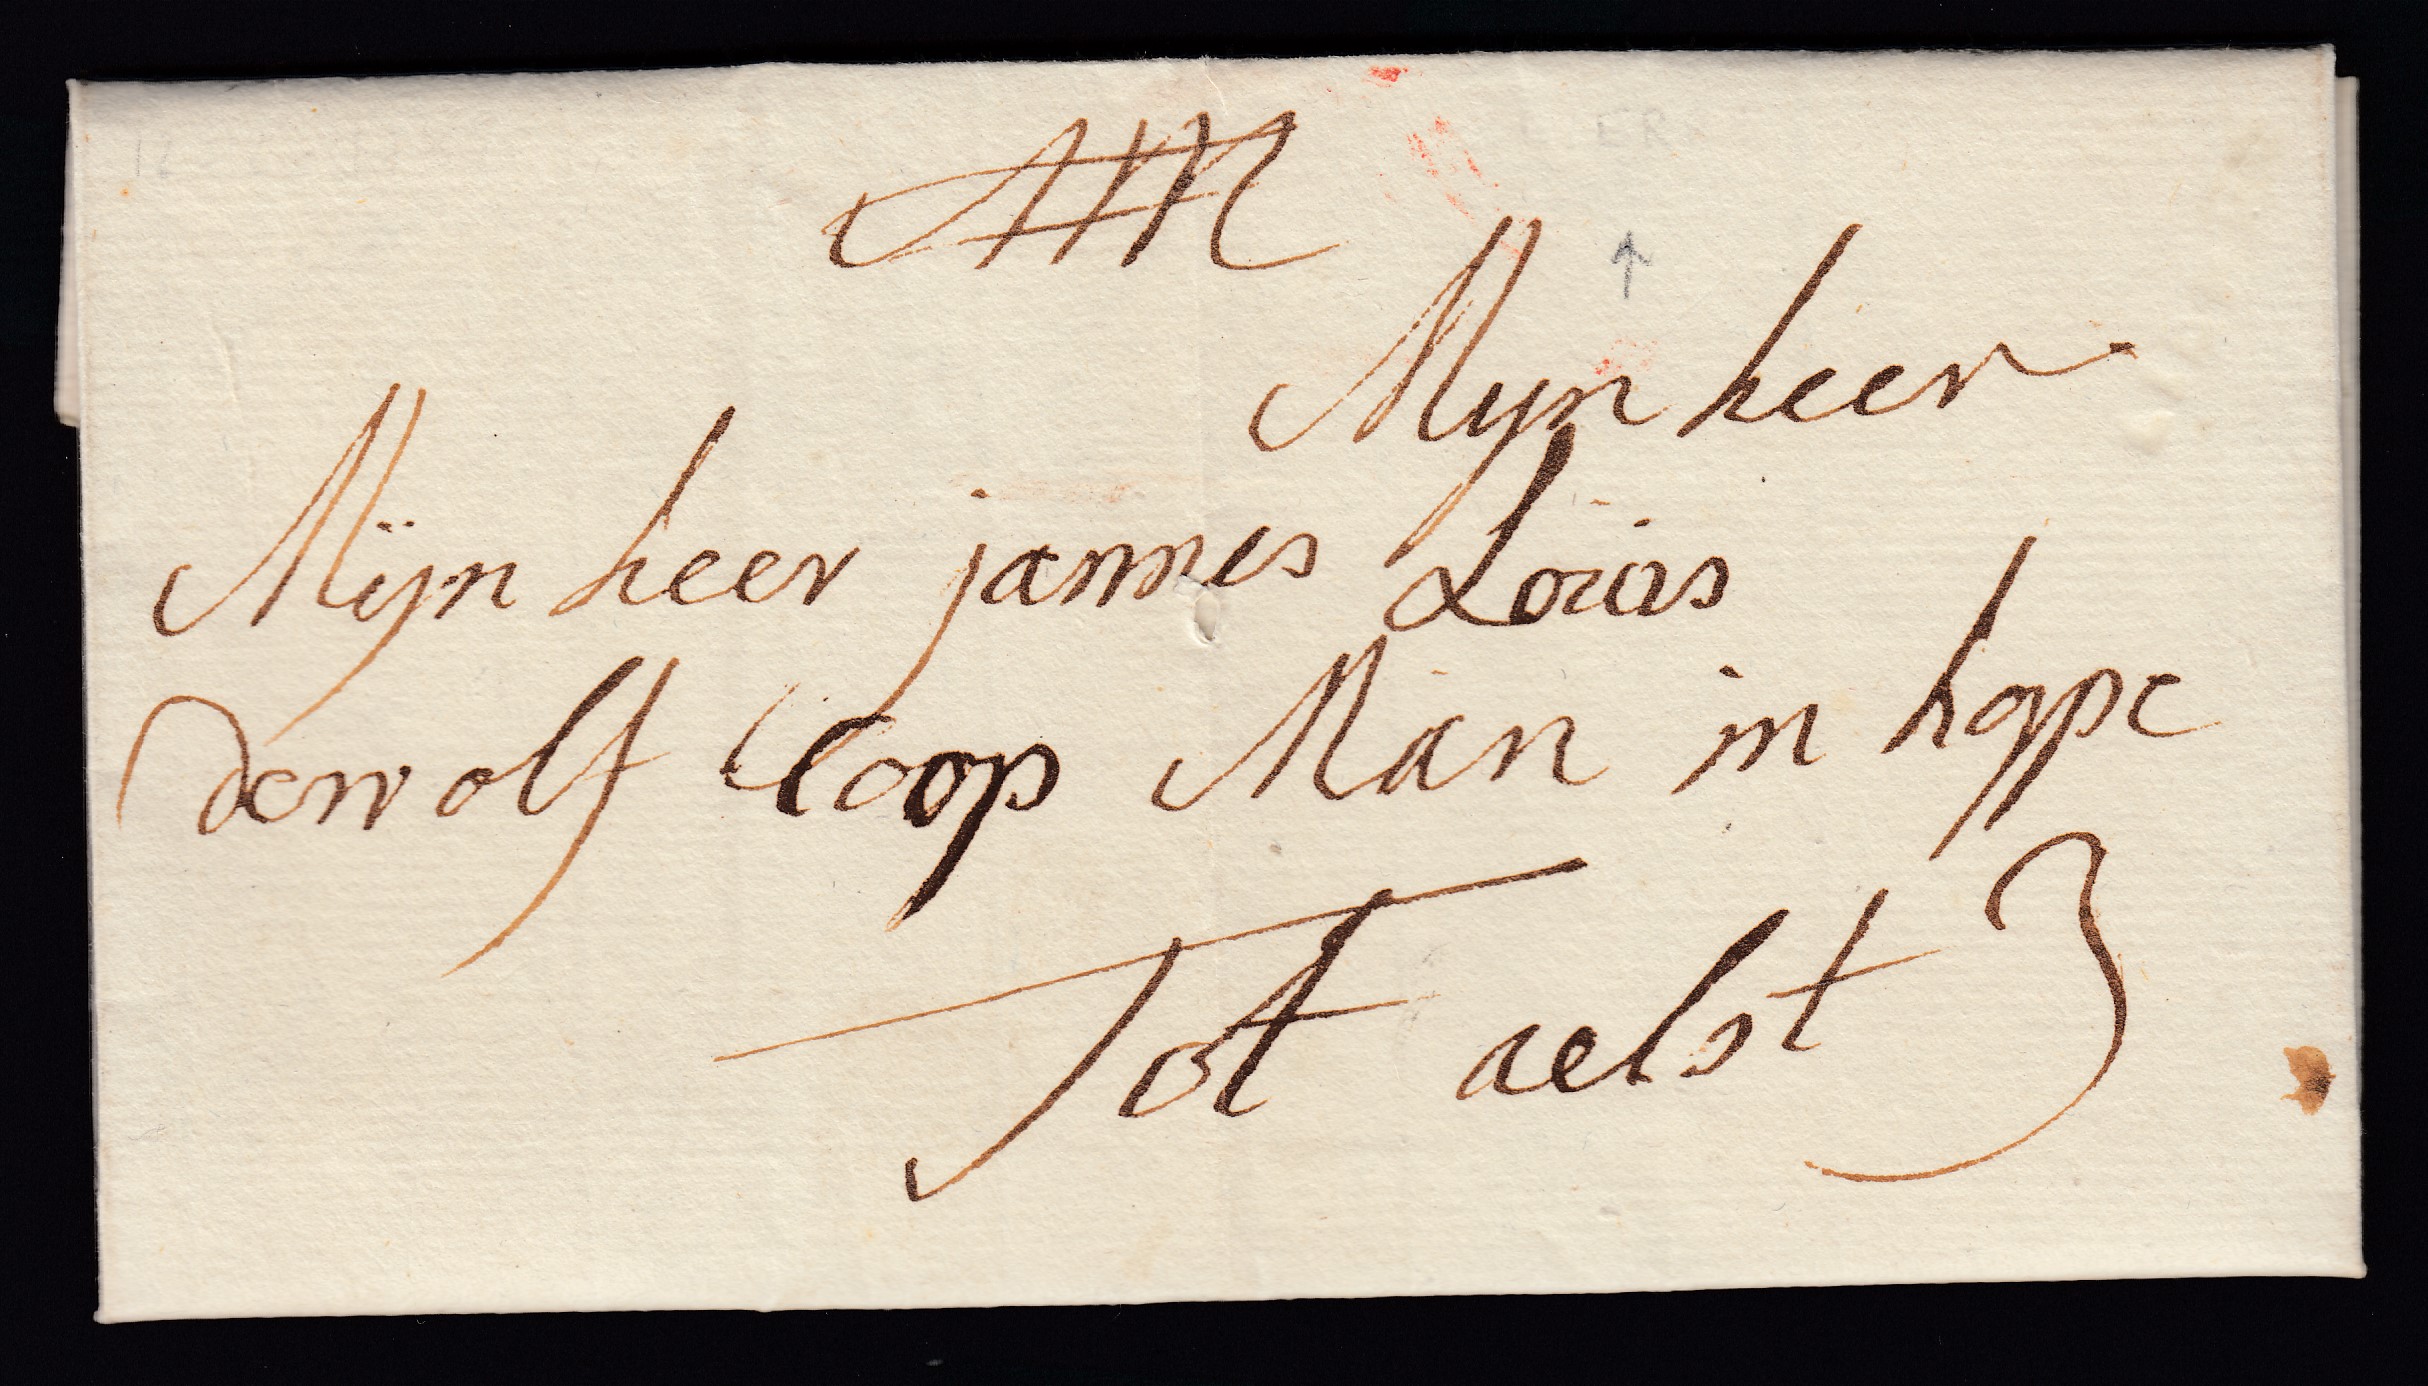 Mijn heer
Mÿn heer jannes Louis
de wolf Coop Man in hoppe
Tot aelst 3